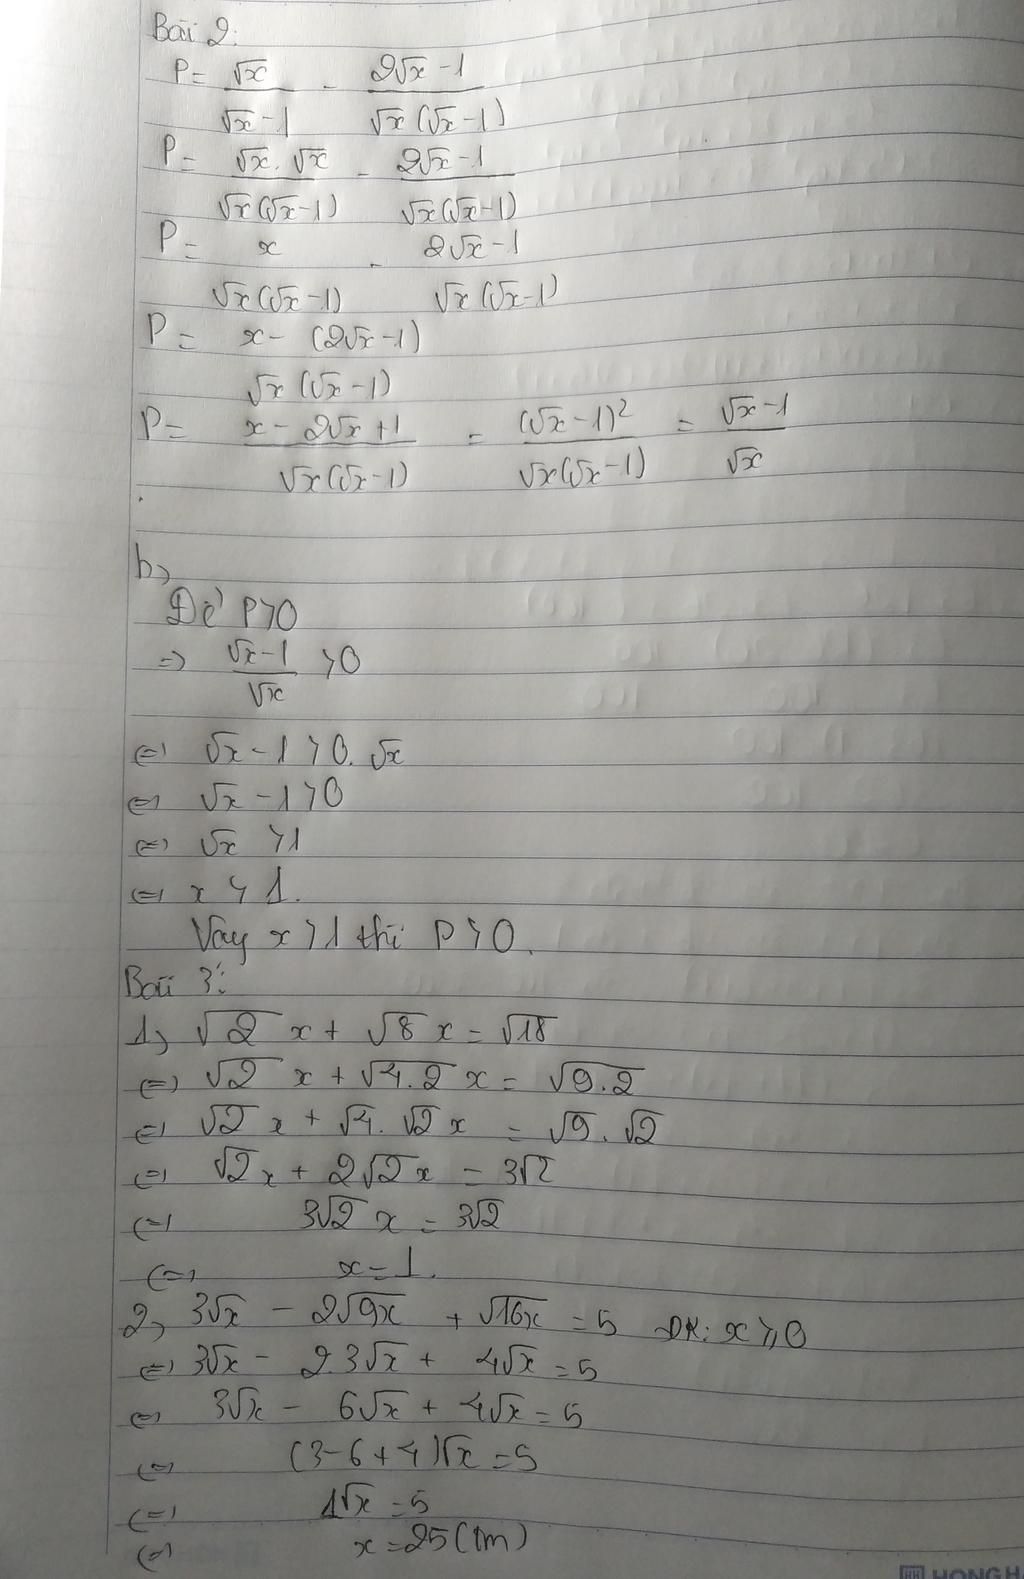 Bài 2:
P = √x / (√x - 1) - (2√x - 1) / (√x(√x - 1))
P = (√x . √x) / (√x(√x - 1)) - (2√x - 1) / (√x(√x - 1))
P = x / (√x(√x - 1)) - (2√x - 1) / (√x(√x - 1))
P = (x - (2√x - 1)) / (√x(√x - 1))
P = (x - 2√x + 1) / (√x(√x - 1)) = (√x - 1)² / (√x(√x - 1)) = (√x - 1) / √x
b,
Để P>0
=> (√x - 1) / √x > 0
<=> √x - 1 > 0. √x
<=> √x - 1 > 0
<=> √x > 1
<=> x > 1.
Vậy x > 1 thì P > 0.
Bài 3:
1, √2 x + √8 x = √18
<=> √2 x + √4.2 x = √9.2
<=> √2 x + √4. √2 x = √9. √2
<=> √2 x + 2√2 x = 3√2
<=> 3√2 x = 3√2
<=> x = 1.
2, 3√x - 2√9x + √16x = 5 ĐK: x ⩾ 0
<=> 3√x - 2.3√x + 4√x = 5
<=> 3√x - 6√x + 4√x = 5
<=> (3 - 6 + 4)√x = 5
<=> 1√x = 5
<=> x = 25 (tm)
HONG H